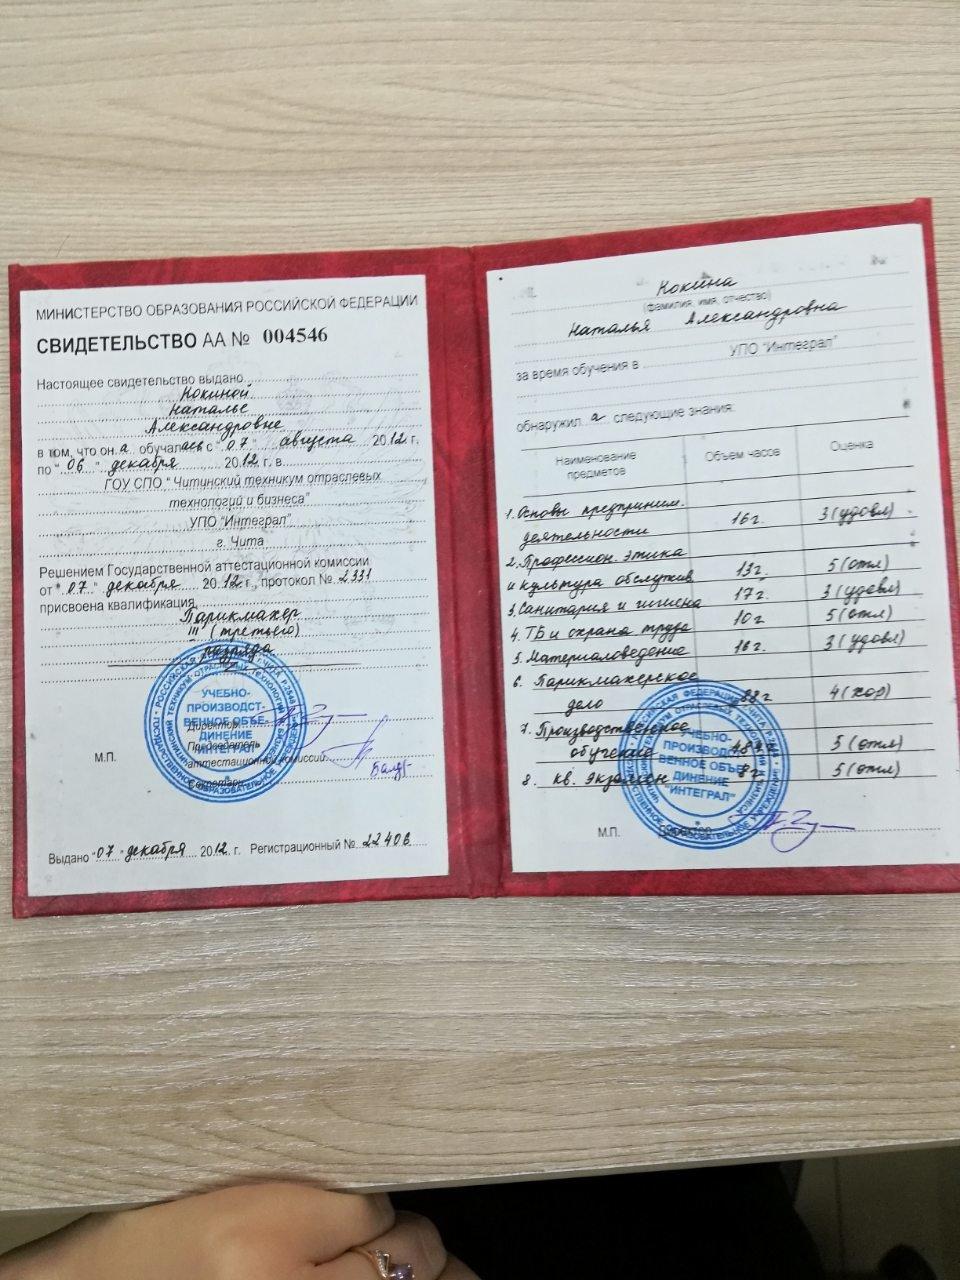 МИНИСТЕРСТВО ОБРАЗОВАНИЯ РОССИЙСКОЙ ФЕДЕРАЦИИ
СВИДЕТЕЛЬСТВО АА № 004546
Настоящее свидетельство выдано
Кокиной
Наталье
Александровне
в том, что он а обучалась с "07" августа 2012 г.
по "06" декабря 2012 г. в
ГОУ СПО " Читинский техникум отраслевых
технологий и бизнеса"
УПО "Интеграл"
г. Чита
Решением Государственной аттестационной комиссии
от "07" декабря 2012 г., протокол № 2331
присвоена квалификация
Парикмахер
III (третьего)
разряда
УЧЕБНО-
ПРОИЗВОДСТ-
ВЕННОЕ ОБЪЕ-
ДИНЕНИЕ
"ИНТЕГРАЛ"
Директор
Председатель
аттестационной комиссии
Секретарь
М.П.
Выдано "07" декабря 2012 г. Регистрационный № 22406
Кокина
(фамилия, имя, отчество)
Наталья Александровна
за время обучения в УПО "Интеграл"
обнаружил а следующие знания:
Наименование предметов Объем часов Оценка
1. Основы предприним.
деятельности 16г. 3 (удовл)
2. Профессион. этика
и культура обслужив. 13г. 5 (отл)
3. Санитария и гигиена 17г. 3 (удовл)
4. ТБ и охрана труда 10г. 5 (отл)
5. Материаловедение 16г. 3 (удовл)
6. Парикмахерское
дело 88г 4 (хор)
7. Производственное
обучение 5 (отл)
8. кв. экзамен 8г 5 (отл)
УЧЕБНО-
ПРОИЗВОДСТ-
ВЕННОЕ ОБЪЕ-
ДИНЕНИЕ
"ИНТЕГРАЛ"
М.П.